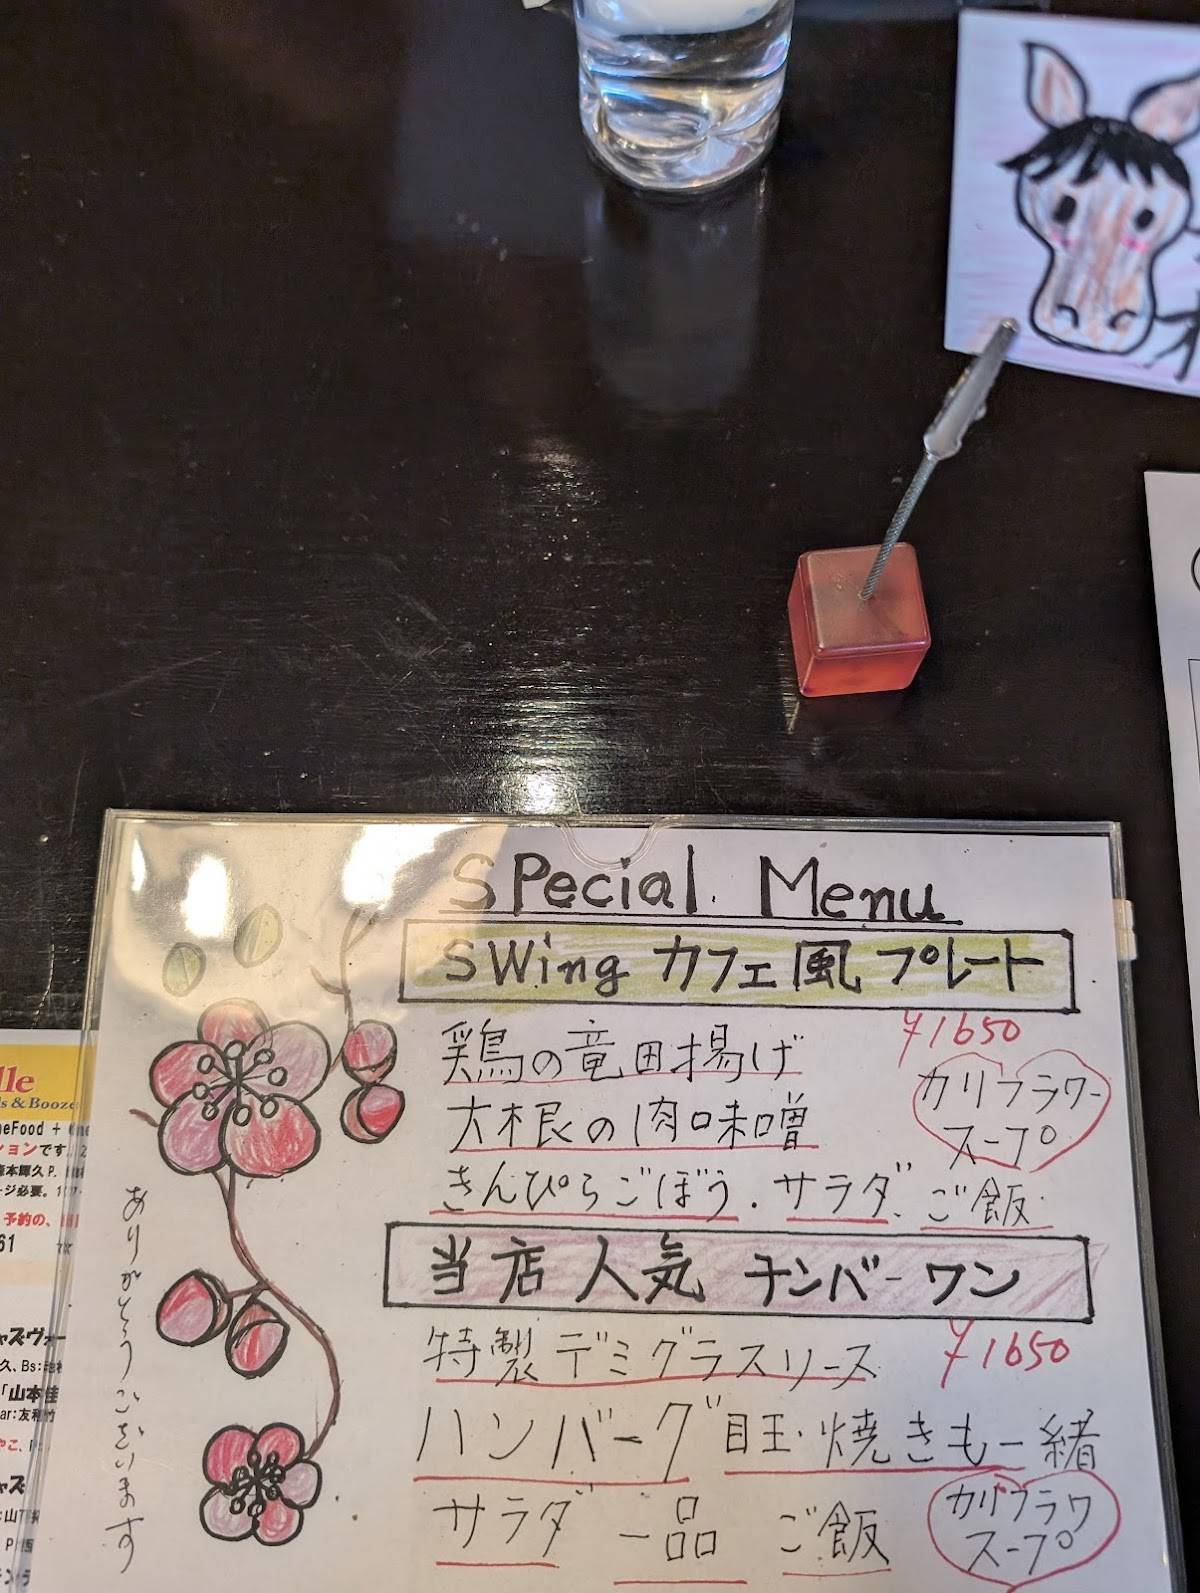 Special Menu
SWing カフェ風プレート
¥1650
鶏の竜田揚げ
カリフラワースープ
大根の肉味噌
きんぴらごぼう.サラダ、ご飯
当店人気 ナンバーワン
特製デミグラスソース ¥1650
ハンバーグ 目玉焼きも一緒
サラダ 一品 ご飯
カリフラワスープ
ありがとうございます
lle
s & Booze
neFood + One
ションです
森本輝久 P.
ージ必要。
予約の、
61
ャズヴォー
久、Bs:
「山本佳
ar:友
ャズ